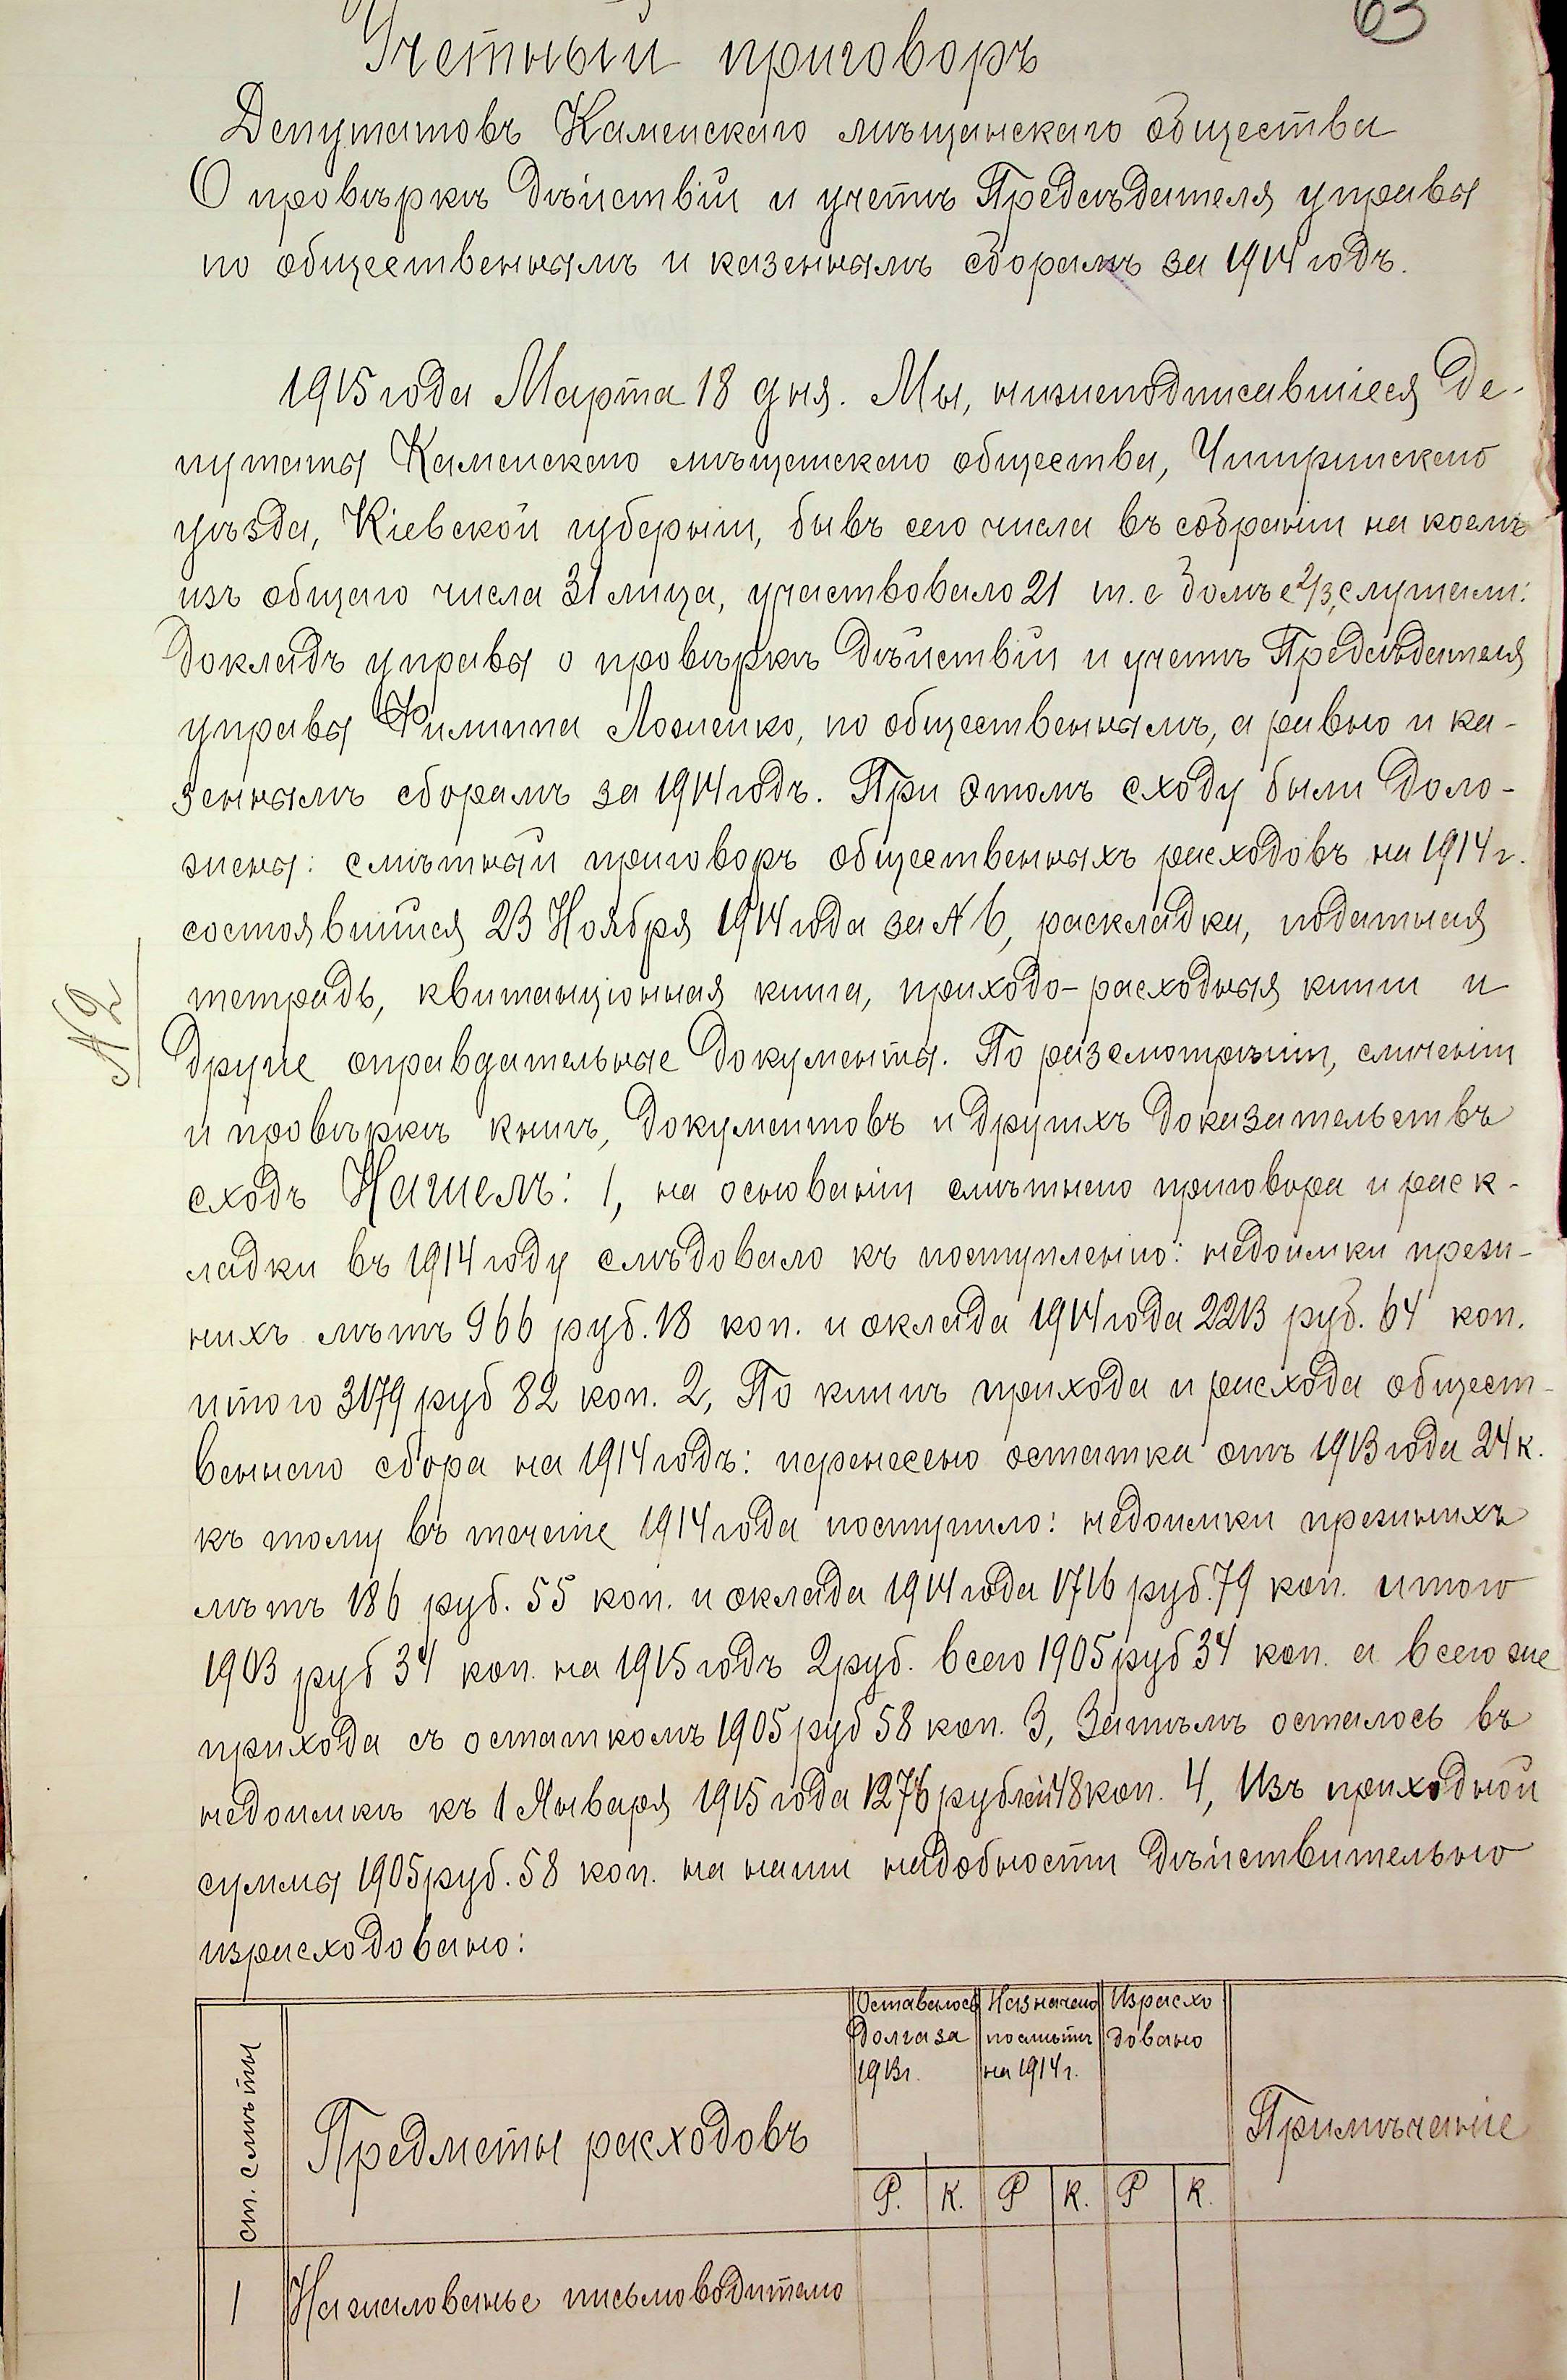 63
Учетный приговоръ
Депутатовъ Каменскаго мѣщанскаго общества
О провѣркѣ дѣйствій и учетѣ Предсѣдателя управы
по общественнымъ и казеннымъ сборамъ за 1914 годъ.
1915 года Марта 18 дня. Мы, нижеподписавшіеся де-
путаты Каменскаго мѣщанскаго общества, Чигиринскаго
уѣзда, Кіевской губерніи, бывъ сего числа въ собраніи на коемъ
изъ общаго числа 31 лица, участвовало 21 т. е болѣе 2/3, слушали:
докладъ управы о провѣркѣ дѣйствій и учетѣ Предсѣдателя
управы Филиппа Ложенко, по общественнымъ, а равно и ка-
зеннымъ сборамъ за 1914 годъ. При этомъ сходу были доло-
жены: смѣтный приговоръ общественныхъ расходовъ на 1914 г.
состоявшійся 23 Ноября 1914 года за № 6, раскладка, податная
тетрадь, квитанціонная книга, приходо-расходная книги и
№ 2
другіе оправдательные документы. По разсмотрѣніи, сличеніи
и провѣркѣ книгъ, документовъ и другихъ доказательствъ
сходъ Нашелъ: 1, на основаніи смѣтнаго приговора и раск-
ладки въ 1914 году слѣдовало къ поступленію: недоимки преж-
нихъ лѣтъ 966 руб. 18 коп. и оклада 1914 года 2213 руб. 64 коп.
итого 3179 руб 82 коп. 2, По книгѣ прихода и расхода общест-
веннаго сбора на 1914 годъ: перенесено остатка отъ 1913 года 24 к.
къ тому въ теченіе 1914 года поступило: недоимки прежнихъ
лѣтъ 186 руб. 55 коп. и оклада 1914 года 1716 руб. 79 коп. итого
1903 руб 34 коп. на 1915 годъ 2 руб. всего 1905 руб 34 коп. а всего же
прихода съ остаткомъ 1905 руб 58 коп. 3, Затѣмъ осталось въ
недоимкѣ къ 1 Января 1915 года 1276 рублей 48 коп. 4, Изъ приходной
суммы 1905 руб. 58 коп. на наши надобности дѣйствительно
израсходовано:
ст. смѣты
Предметы расходовъ
Оставалось
долга за
1913 г.
Назначено
по смѣтѣ
на 1914 г.
Израсхо
довано
Примѣчаніе
Р. К. Р К. Р К.
1 На жалованье письмоводителю